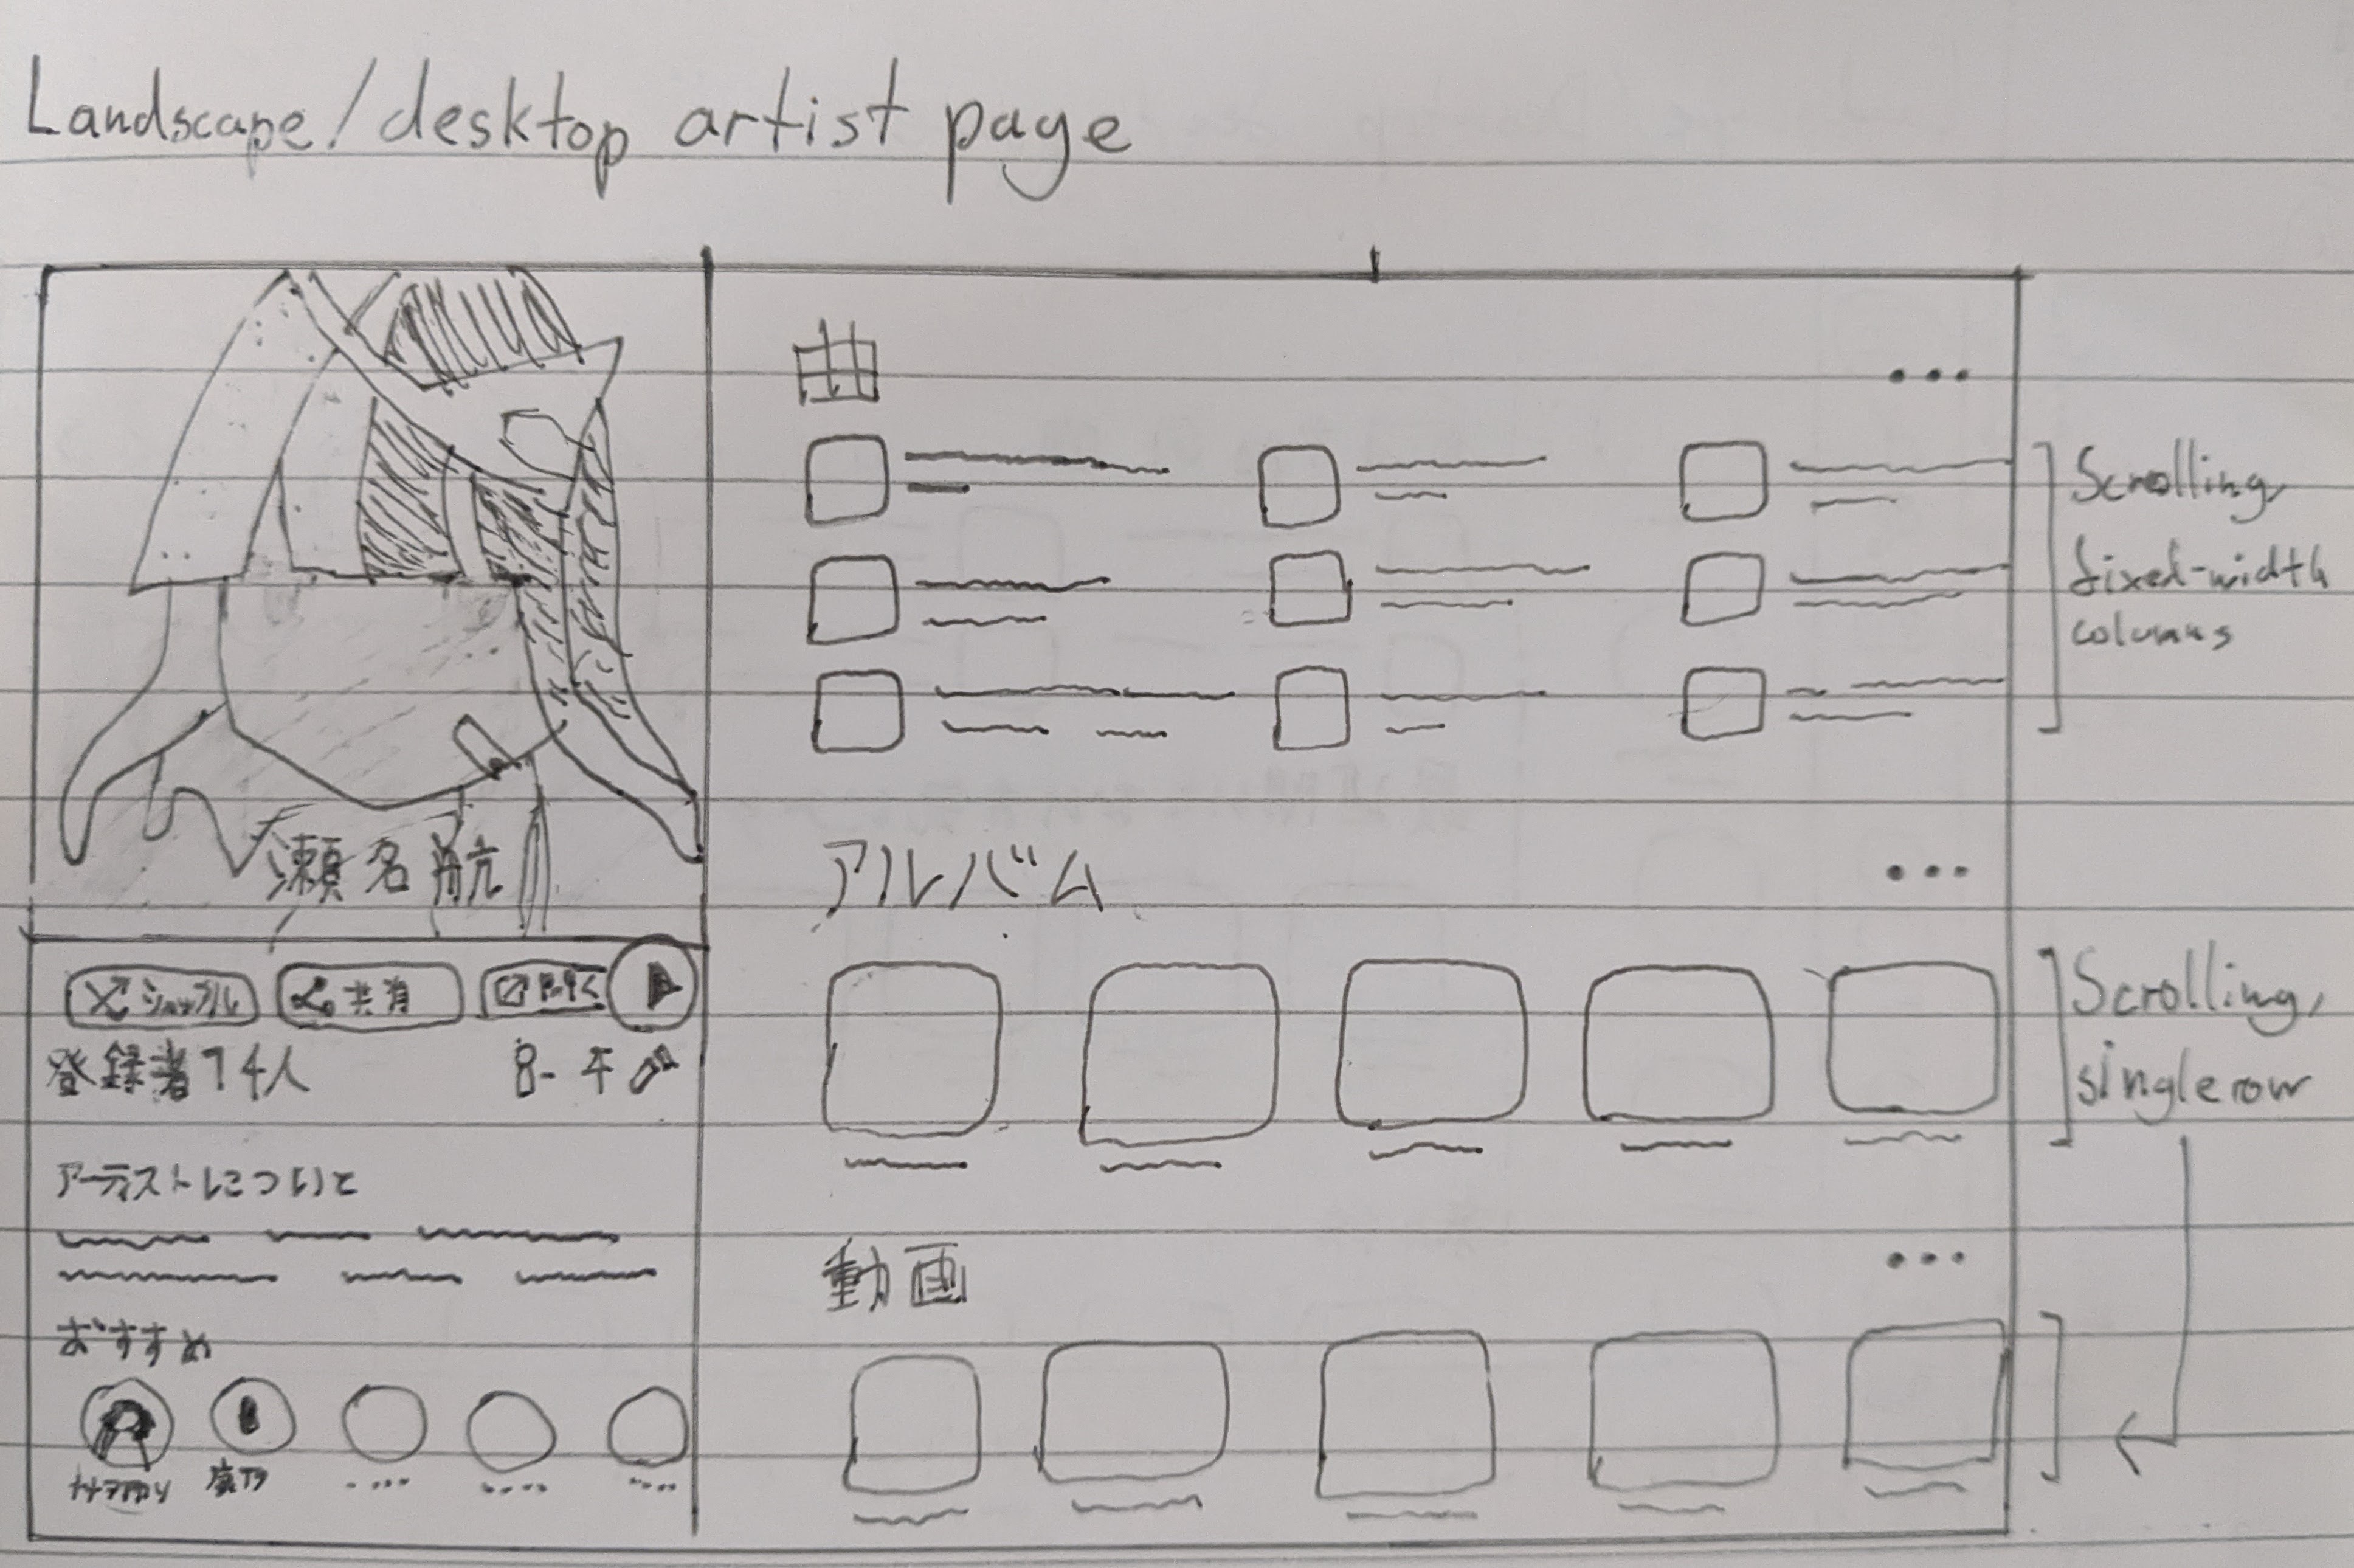 Landscape/desktop artist page
瀬名航
シャッフル
共有
登録者74人
アーティストについて
おすすめ
曲
...
アルバム
...
動画
...
Scrolling,
fixed-width
columns
Scrolling,
single row